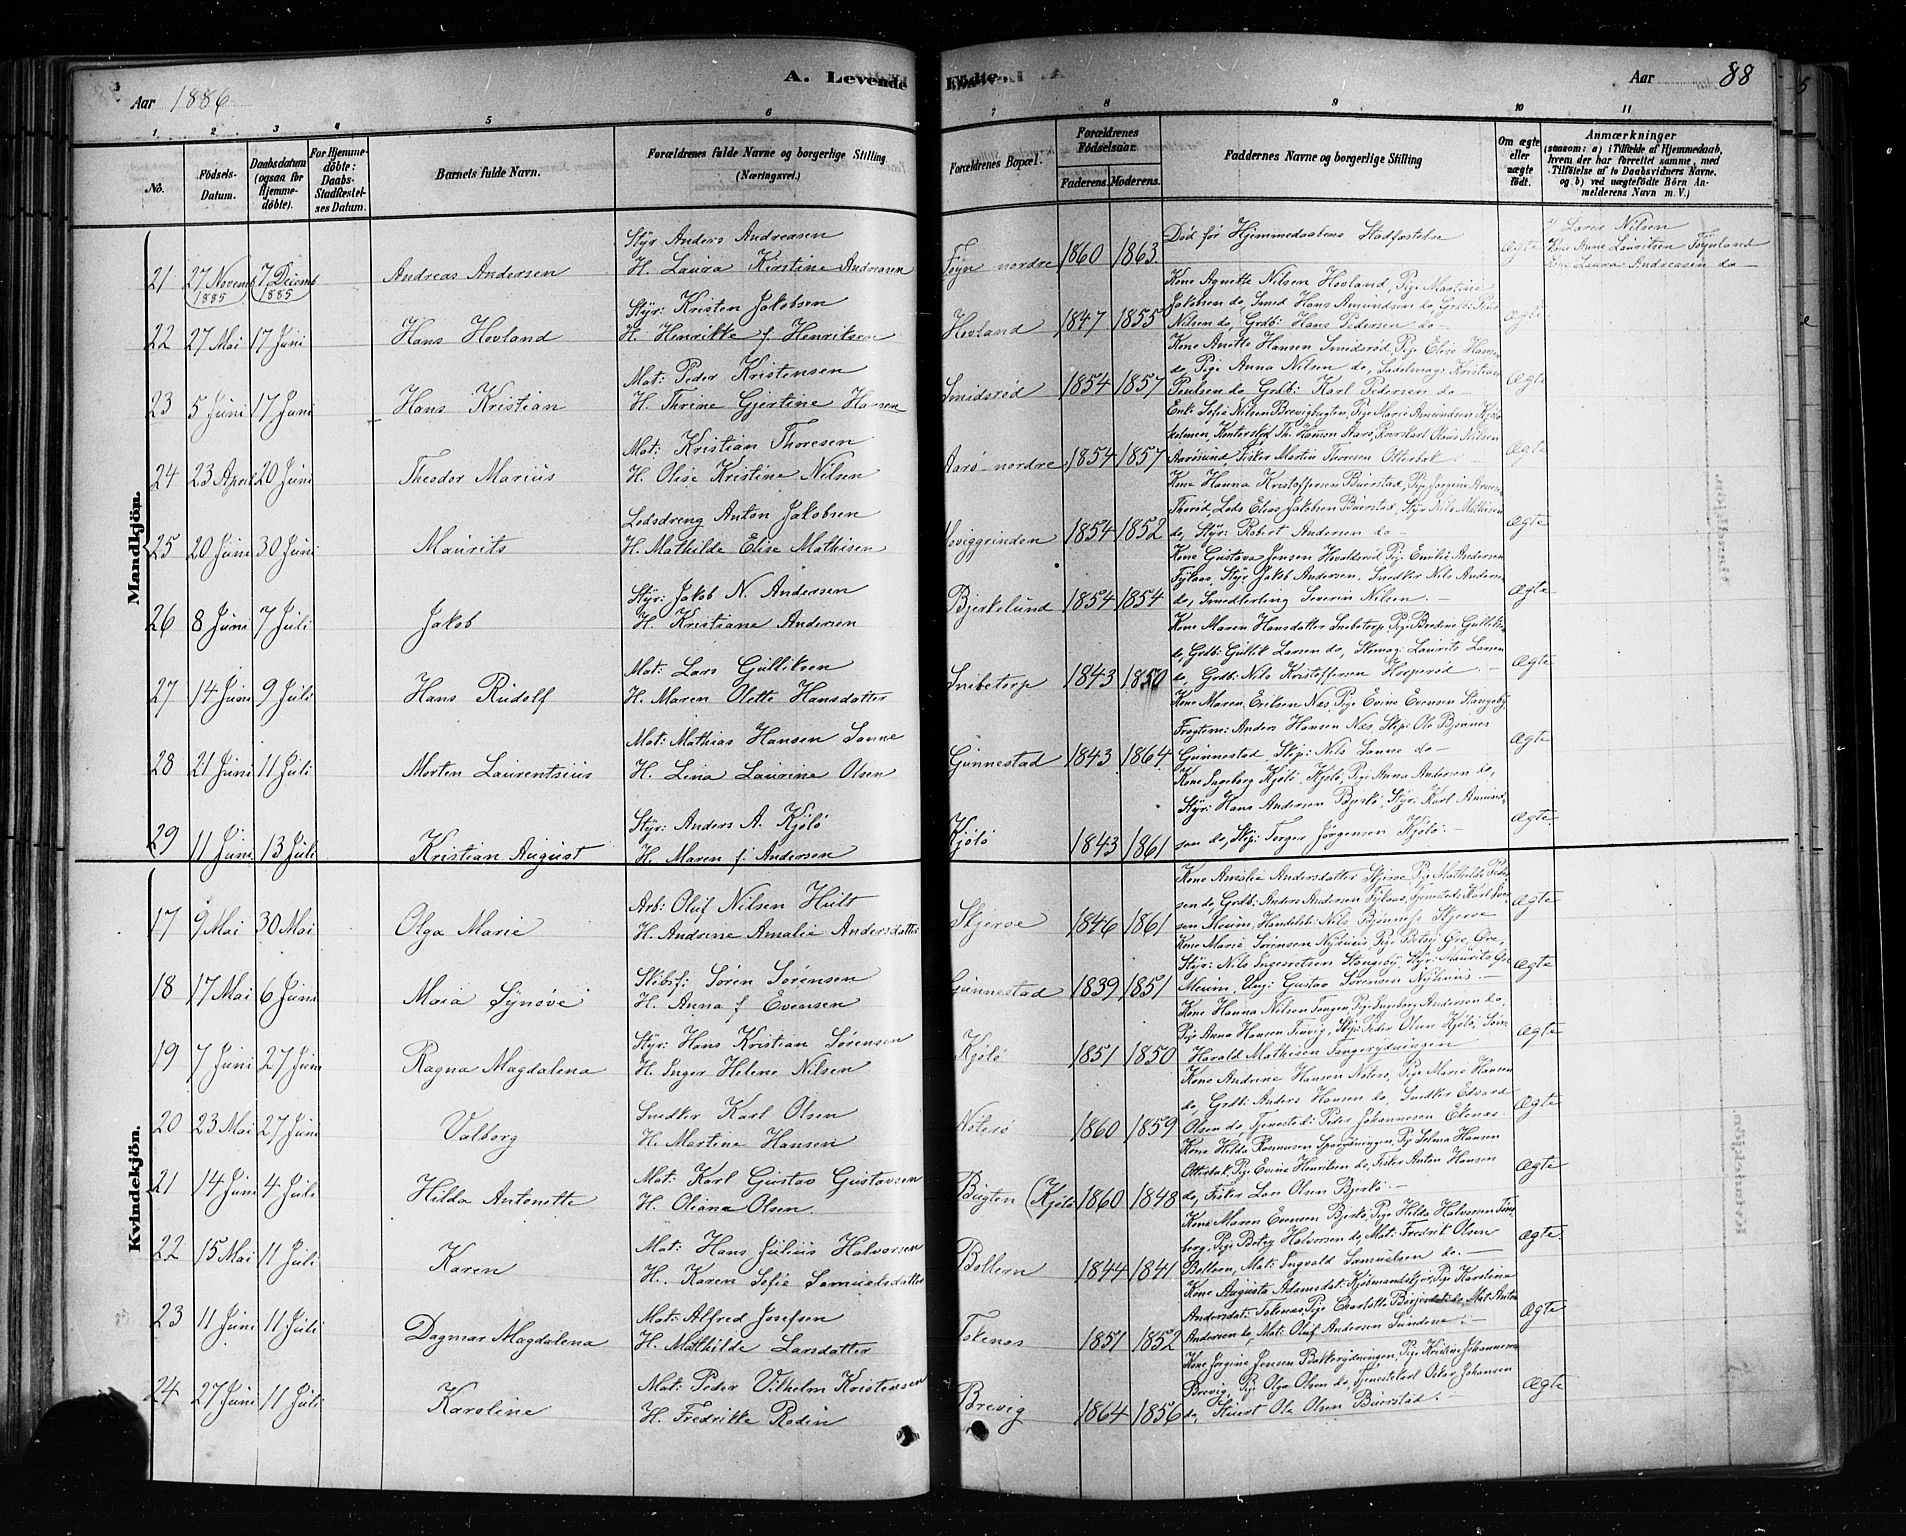 A. Levende Födte.
Aar 1886
Aar 88
1 2 3 4 5 6 7 8 9 10 11
No.
Födsels-Datum.
Daabsdatum (ogsaa for Hjemme-döbte).
For Hjemme-döbte: Daabs-Stadfæstel-ses Datum.
Barnets fulde Navn.
Forældrenes fulde Navne og borgerlige Stilling. (Næringsvei.)
Forældrenes Bopæl.
Forældrenes Födselsaar. Faderens. Moderens.
Faddernes Navne og borgerlige Stilling
Om ægte eller uægte födt.
Anmærkninger (saasom: a) i Tilfælde af Hjemmedaab, hvem der har forrettet samme, med Tilföielse af to Daabsvidners Navne, og b) ved uægtefödte Börn An-melderens Navn m. V.)
Mandkjön.
21 27 Novemb 1885 7 Decemb 1885 Andreas Andersen Styr Anders Andreasen H. Laura Kirstine Andreasen Föyn nordre 1860 1863 Död för Hjemmedaabens Stadfæstelse Ægte Laura Andreasen do
22 27 Mai 17 Juni Hans Hovland Styr: Kristen Jakobsen H. Henrikke f. Henriksen Hovland 1847 1855 Kone Agnette Nilsen Hovland, Pige Martine Jakobsen do, Smed Hans Amundsen do, Grdb: Peder Nilsen do, Grdb: Hans Pedersen do Ægte
23 5 Juni 17 Juni Hans Kristian Mat: Peder Kristensen H. Thrine Gjertine Hansen Smidsröd 1854 1857 Kone Anette Hansen Smidsröd, Pige Elise Hansen do, Pige Anna Nilsen do, Sadelmag: Kristian Poulsen do Grdb: Karl Pedersen do Ægte
24 23 April 20 Juni Theodor Marius Mat: Kristian Thoresen H. Olise Kristine Nilsen Aarö nordre 1854 1857 Enke Sofie Nilsen Brevigbugten, Pige Marie Amundsen Kjölö Aarösund, Fisker Martin Thoresen Otterbæk Ægte
25 20 Juni 30 Juni Maurits Lodsdreng Anton Jakobsen H. Mathilde Elise Mathisen 1854 1852 Kone Hanna Kristoffersen Buerstad, Thoröd, Lods Elias Jakobsen Buerstad, Styr Nils Mathisen do, Styr: Robert Andersen do Ægte
26 8 Juni 7 Juli Jakob Styr: Jakob N. Andersen H. Kristiane Andersen Bjerkelund 1854 1854 Kone Gustava Jensen Pige Emilie Andersen Styr Jakob Andersen, Snedker Nils Andersen do, Severin Nilsen Ægte
27 14 Juni 9 Juli Hans Rudolf Mat: Lars Gulliksen H. Maren Olette Hansdatter Snibetorp 1843 1850 Kone Maren Hansdatter Snibetorp, Grdb: Gullik Larsen do, Laurits Larsen do, Grdb: Nils Kristoffersen Ægte
28 21 Juni 11 Juli Morten Laurentsius Mat: Mathias Hansen Sanne H. Lina Laurine Olsen Gunnestad 1843 1864 Kone Maren Eriksen Næs, Pige Evine Evensen Stangeby Anders Hansen Næs, Skip: Ole Bjønnes Gunnestad, Skip: Nils Sanne do Ægte
29 11 Juni 13 Juli Kristian August Styr: Anders A. Kjölö H. Maren f. Andersen Kjölö 1843 1861 Kone Ingeborg Kjölö, Kjölö, Pige Anna Andersen do, Styr: Hans Andersen Bjerkö, Styr: Karl Amund-sen do, Skip: Torger Jörgensen Kjölö Ægte
Kvindekjön.
17 9 Mai 30 Mai Olga Marie Arb: Oluf Nilsen Hult H. Andrine Amalie Andersdatter Skjerve 1846 1861 Kone Amalie Andersdatter Skjerve, Pige Mathilde Peder-sen do, Grdb: Anders Andersen Meum, Handelsb: Nils Skjerve Ægte
18 17 Mai 6 Juni Maia Synöve Skibsf: Sören Sörensen H. Anna f. Evensen Gunnestad 1839 1851 Kone Marie Sörensen Nyhuus, Pige Betsy Öre, Öre, Styr: Nils Ingesretsen Stangeby, Styr: Maurits Meum, Ung: Gustav Sörensen Nyhuus Ægte
19 7 Juni 27 Juni Ragna Magdalena Styr: Hans Kristian Sörensen H. Inger Helene Nilsen Kjölö 1851 1850 Kone Hanna Nilsen Tangen, Pige Ingeborg Andersen do, Pige Anna Hansen Skip: Peder Olsen Kjölö, Harald Mathisen Tangerydningen Ægte
20 23 Mai 27 Juni Valborg Snedker Karl Olsen H. Martine Hansen Nöterö 1860 1859 Kone Andrine Hansen Nöterö, Pige Marie Hansen do, Grdb: Anders Hansen do, Snedker Edvard Olsen do, Peder Johannesen Ekenæs Ægte
21 14 Juni 4 Juli Hilda Antonette Mat: Karl Gustav Gustavsen H. Oliana Olsen Bugten (Kjölö 1860 1848 Kone Hilda Rasmusen Selma Hansen Otterbæk, Pige Evine Henriksen do, Fisker Anton Hansen do, Fisker Lars Olsen Bjerkö Ægte
22 15 Mai 11 Juli Karen Mat: Hans Julius Halvorsen H. Karen Sofie Samuelsdatter Bollern 1844 1841 Kone Maren Evensen Bjerkö, Pige Hilda Halvorsen Töns-berg, Pige Betsy Halvorsen do, Mat: Fredrik Olsen Bollern, Mat: Ingvald Samuelsen do Ægte
23 11 Juni 11 Juli Dagmar Magdalena Mat: Alfred Josefsen H. Mathilde Larsdatter Tokenæs 1851 1852 Kone Augusta Adamsdat: Pige Karoline Andersdat: Tokenæs, Pige Charlotte Mat: Anton Andersen do, Mat: Oluf Andersen Sundene Ægte
24 27 Juni 11 Juli Karoline Mat: Peder Vilhelm Kristensen H. Fredrikke Rodin Brevig 1864 1856 Kone Jörgine Jensen Bakkerydningen, Pige Kristine Johannesen Brevig, Pige Olga Olsen do, Tjenestekarl Oskar Johansen do, Ole Olsen Buerstad Ægte